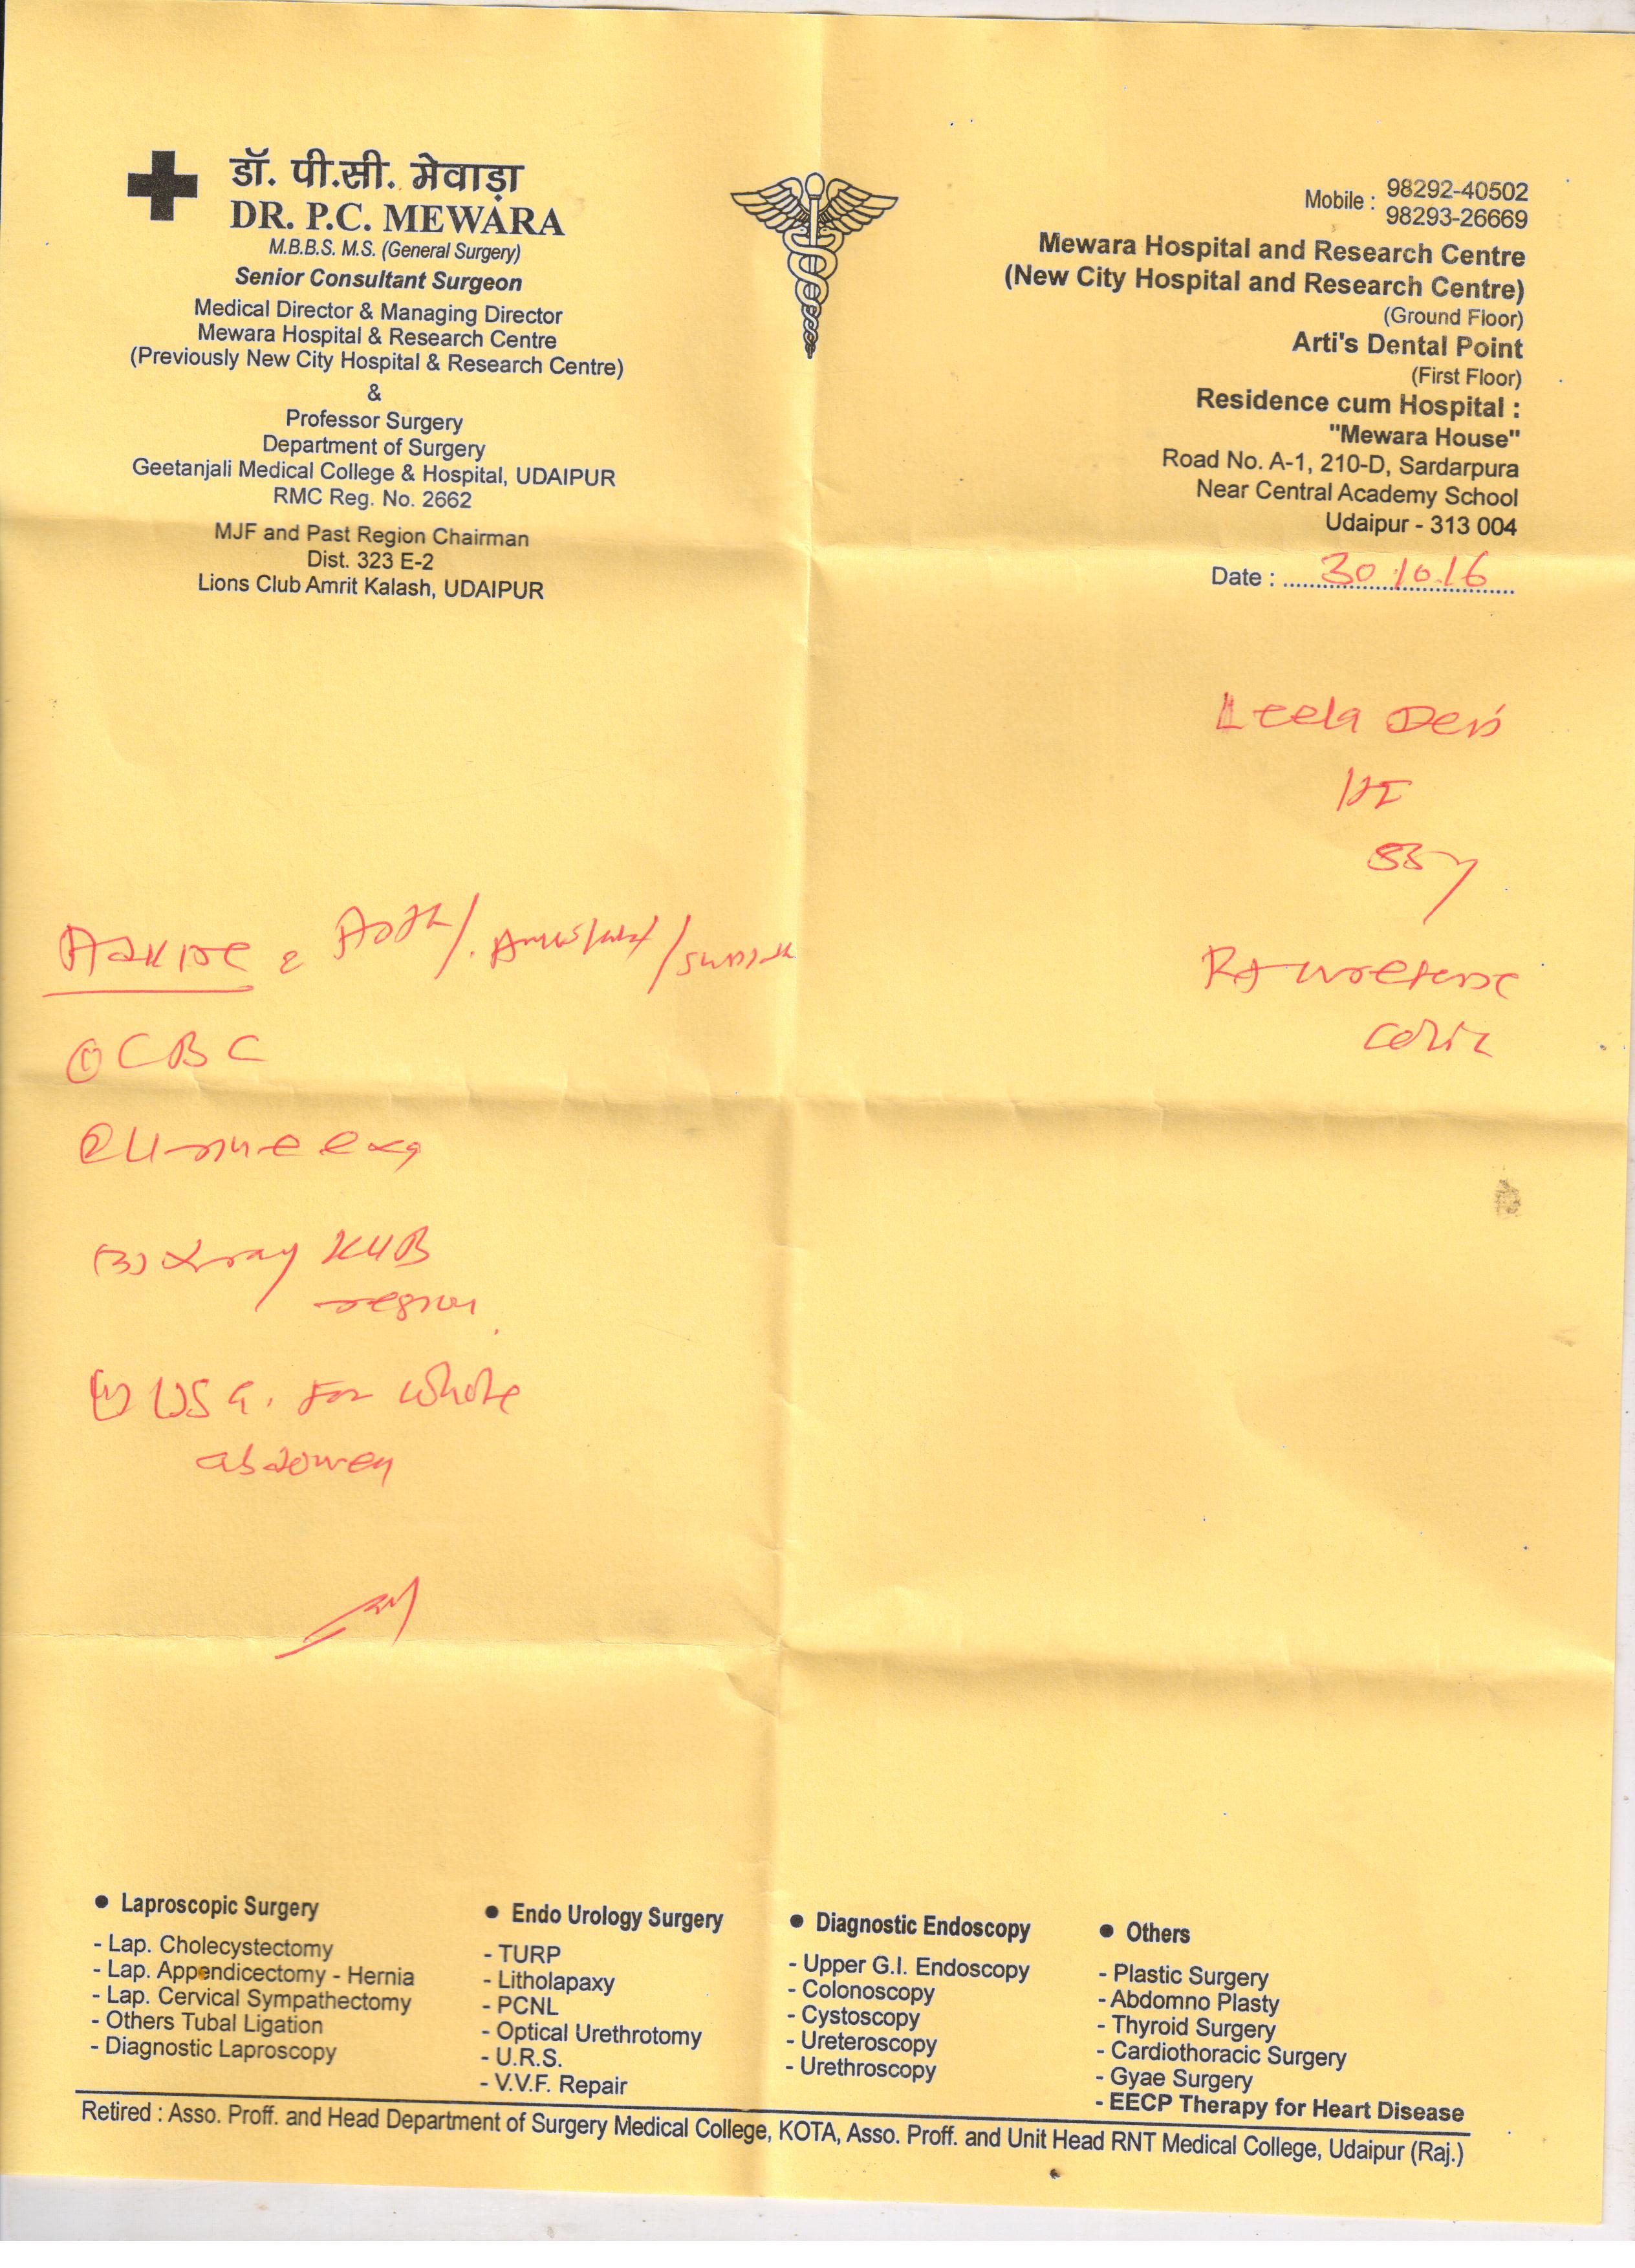 डॉ. पी.सी. मेवाड़ा
DR. P.C. MEWARA
M.B.B.S. M.S. (General Surgery)
Senior Consultant Surgeon
Medical Director & Managing Director
Mewara Hospital & Research Centre
(Previously New City Hospital & Research Centre)
&
Professor Surgery
Department of Surgery
Geetanjali Medical College & Hospital, UDAIPUR
RMC Reg. No. 2662
MJF and Past Region Chairman
Dist. 323 E-2
Lions Club Amrit Kalash, UDAIPUR
Mobile : 98292-40502
98293-26669
Mewara Hospital and Research Centre
(New City Hospital and Research Centre)
(Ground Floor)
Arti's Dental Point
(First Floor)
Residence cum Hospital :
"Mewara House"
Road No. A-1, 210-D, Sardarpura
Near Central Academy School
Udaipur - 313 004
Date : 30.10.16
Leela Devi
55y
Rt ureteric
colic
Advise
① CBC
② Urine exa
(3) Xray KUB
region
(4) USG. For whole
abdomen
● Laproscopic Surgery
- Lap. Cholecystectomy
- Lap. Appendicectomy - Hernia
- Lap. Cervical Sympathectomy
- Others Tubal Ligation
- Diagnostic Laproscopy
● Endo Urology Surgery
- TURP
- Litholapaxy
- PCNL
- Optical Urethrotomy
- U.R.S.
- V.V.F. Repair
● Diagnostic Endoscopy
- Upper G.I. Endoscopy
- Colonoscopy
- Cystoscopy
- Ureteroscopy
- Urethroscopy
● Others
- Plastic Surgery
- Abdomno Plasty
- Thyroid Surgery
- Cardiothoracic Surgery
- Gyae Surgery
- EECP Therapy for Heart Disease
Retired : Asso. Proff. and Head Department of Surgery Medical College, KOTA, Asso. Proff. and Unit Head RNT Medical College, Udaipur (Raj.)